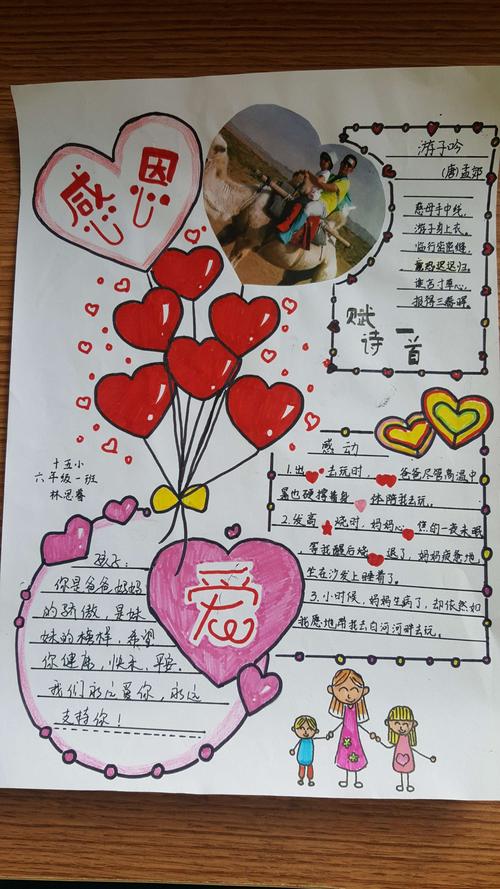 感恩
游子吟
(唐)孟郊
慈母手中线，
游子身上衣。
临行密密缝，
意恐迟迟归。
谁言寸草心，
报得三春晖。
赋诗一首
十五小
六年级一班
林思睿
感动
1.出去玩时，爸爸尽管高温中
暑也硬撑着身体陪我去玩。
2.发高烧时，妈妈心焦的一夜未眠
等我醒后烧退了，妈妈疲惫地
坐在沙发上睡着了。
3.小时候，妈妈生病了，却依然如
我愿地带我去白河河畔去玩。
孩子：
你是爸爸妈妈
的骄傲是妹
妹的榜样，希望
你健康，快乐，平安
我们永远爱你，永远
支持你！
爱